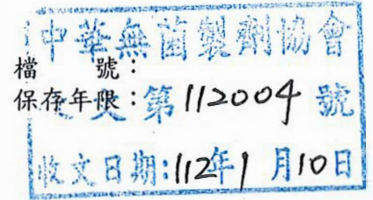 中華無菌製劑協會
檔 號：
保存年限：
收文第112004號
收文日期：112年1月10日